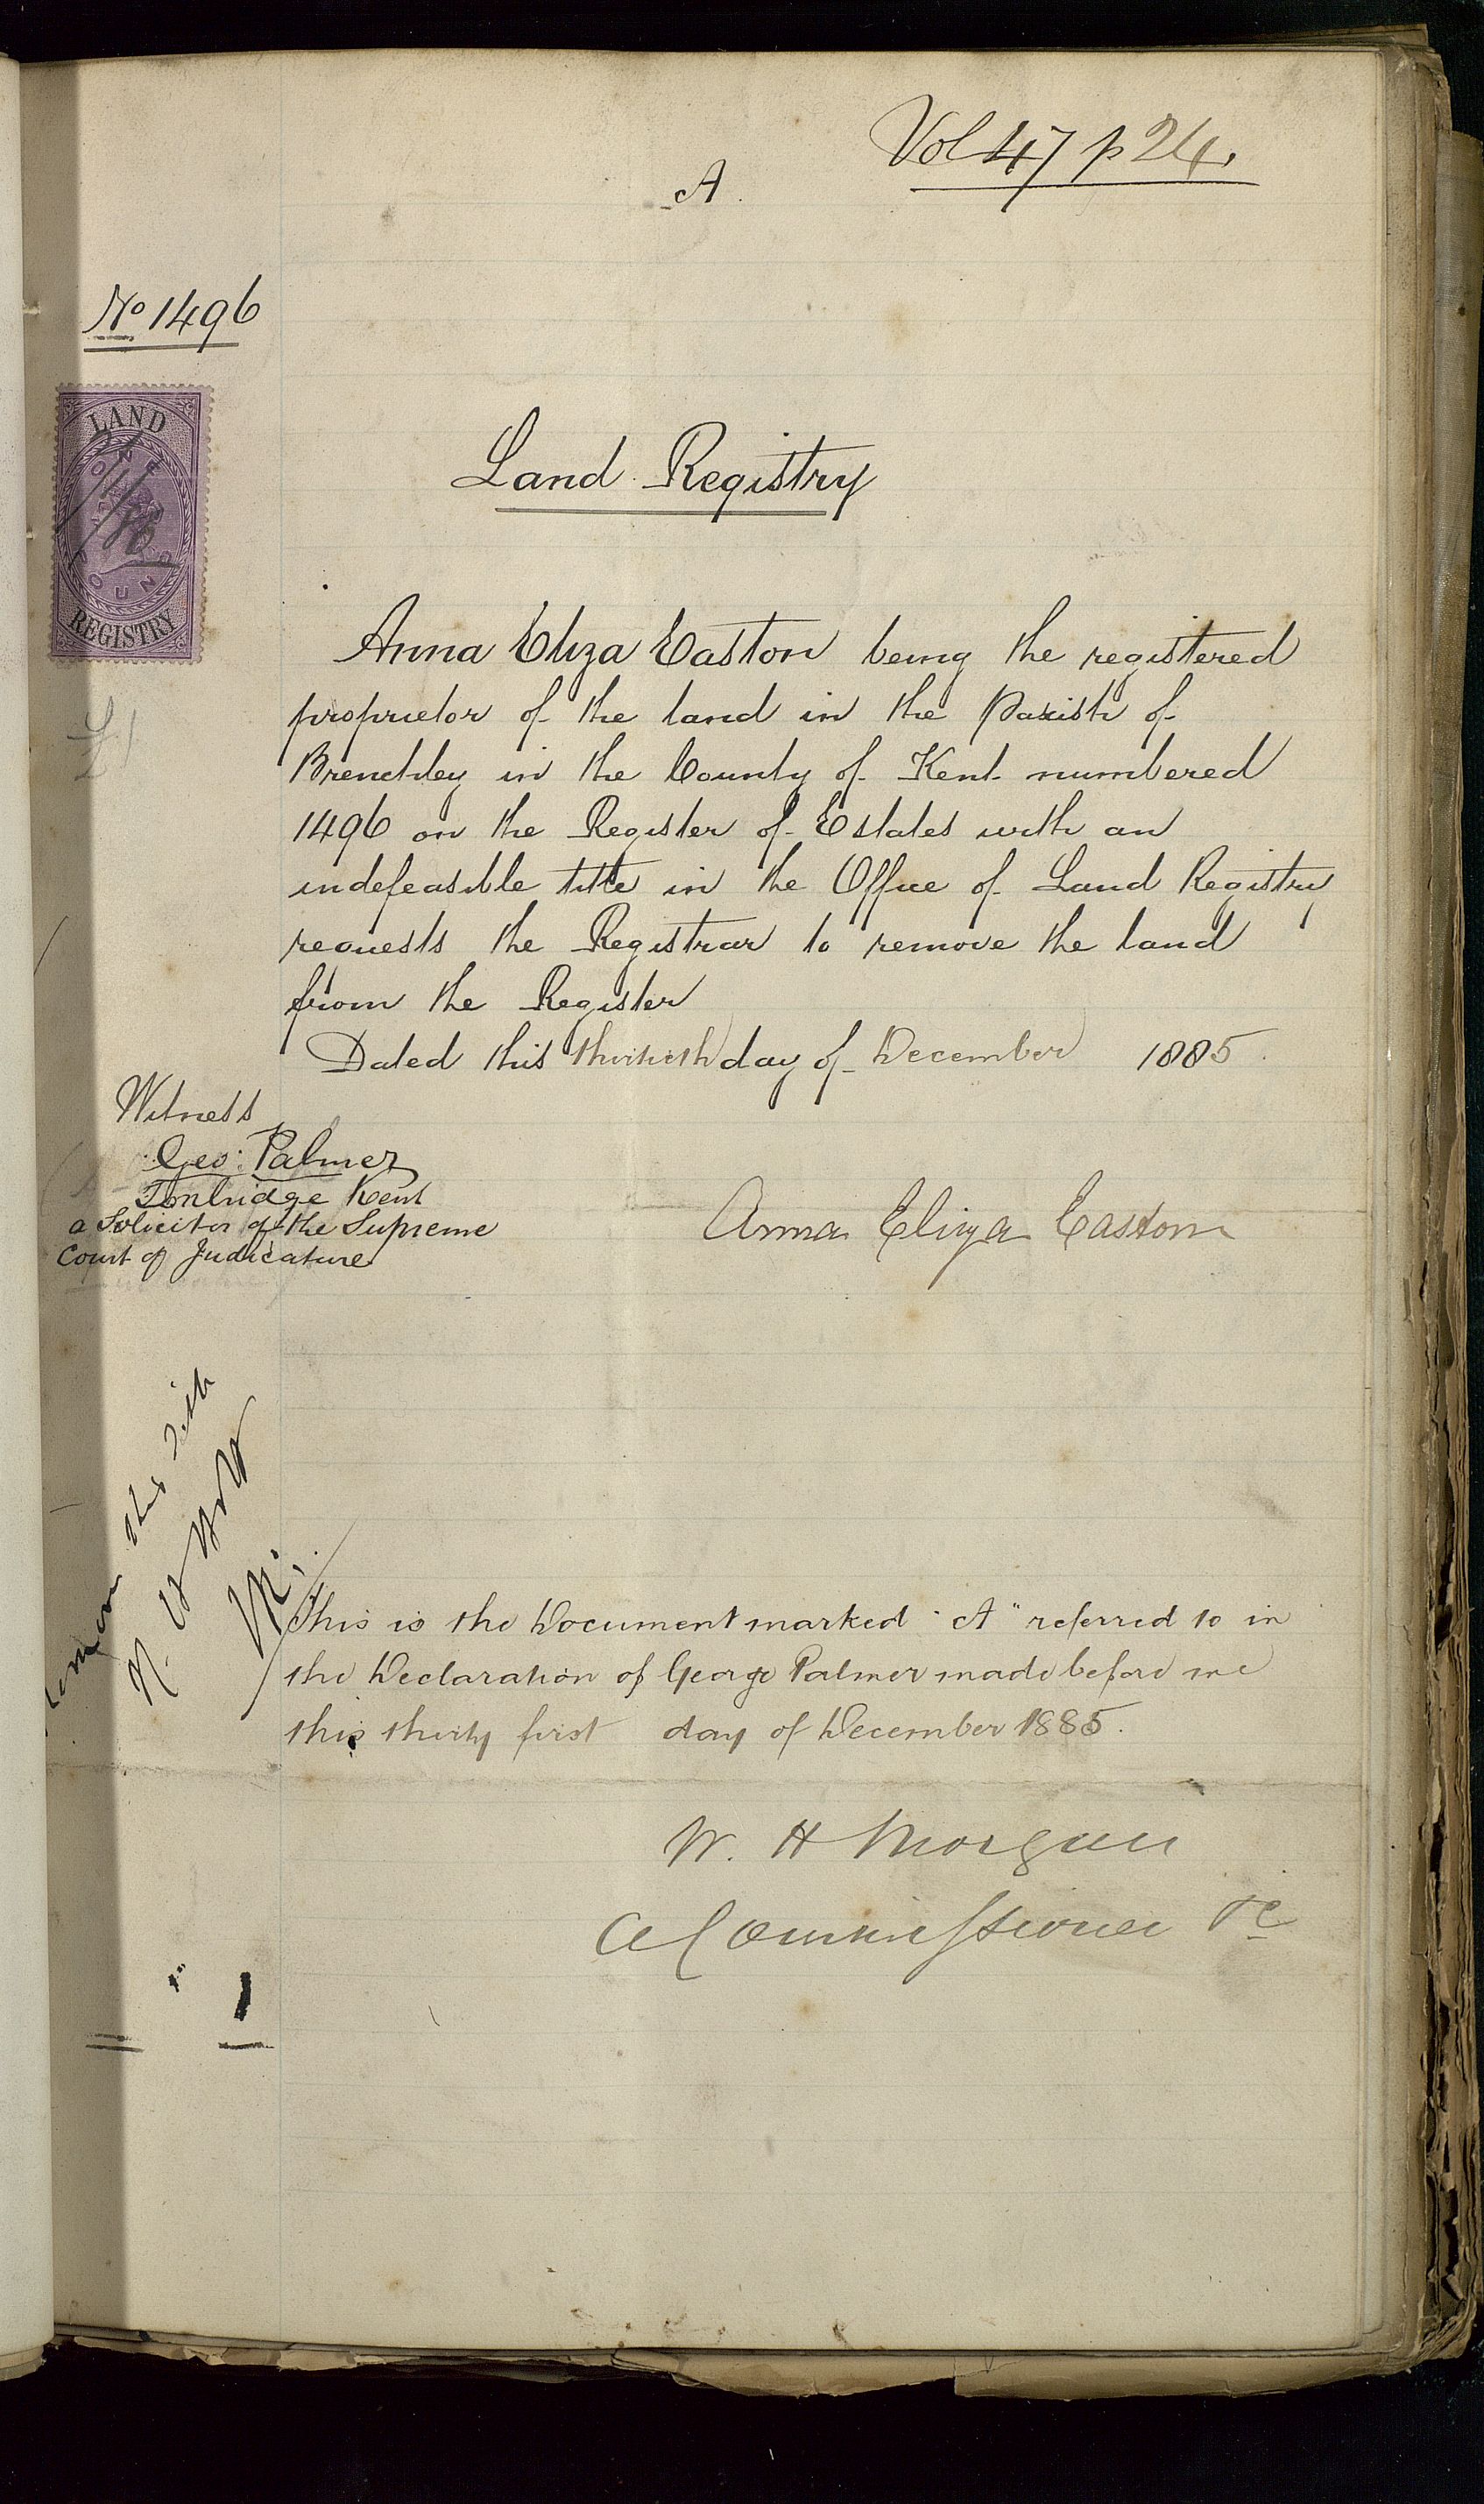 Vol 47 p 24.
A.
No 1496
LAND
ONE
POUND
REGISTRY
£1
Land Registry
Anna Eliza Easton being the registered
proprietor of the land in the Parish of
Brenchley in the County of Kent numbered
1496 on the Register of Estates with an
indefeasible title in the Office of Land Registry
requests the Registrar to remove the land
from the Register
Dated this thirtieth day of December 1885.
Witness
Geo: Palmer
Tonbridge Kent
a Solicitor of the Supreme
Court of Judicature
Anna Eliza Easton
this title
This is the Document marked "A" referred to in
the Declaration of George Palmer made before me
this thirty first day of December 1885.
W. H Morgan
A Commissioner &c
1